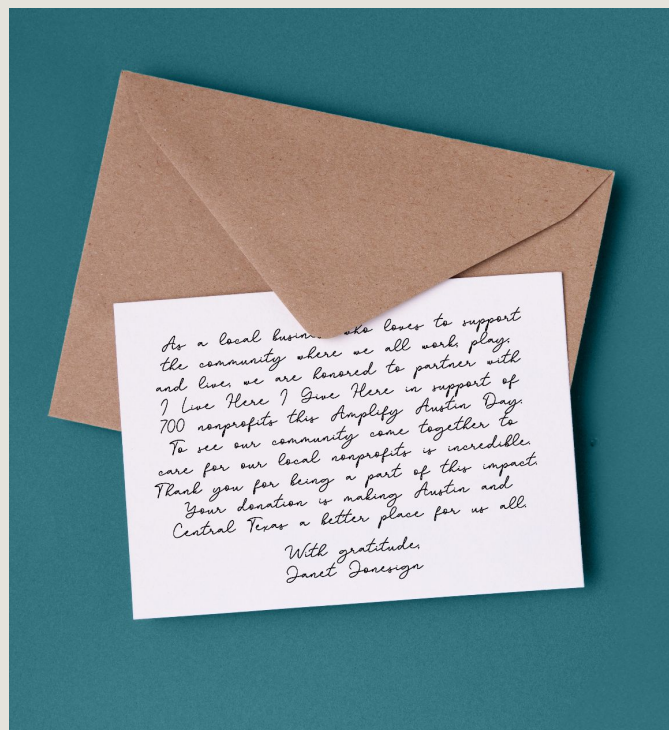 As a local busin who loves to support
the community where we all work, play,
and live, we are honored to partner with
I Live Here I Give Here in support of
700 nonprofits this Amplify Austin Day.
To see our community come together to
care for our local nonprofits is incredible.
Thank you for being a part of this impact.
Your donation is making Austin and
Central Texas a better place for us all.
With gratitude,
Janet Jonesign